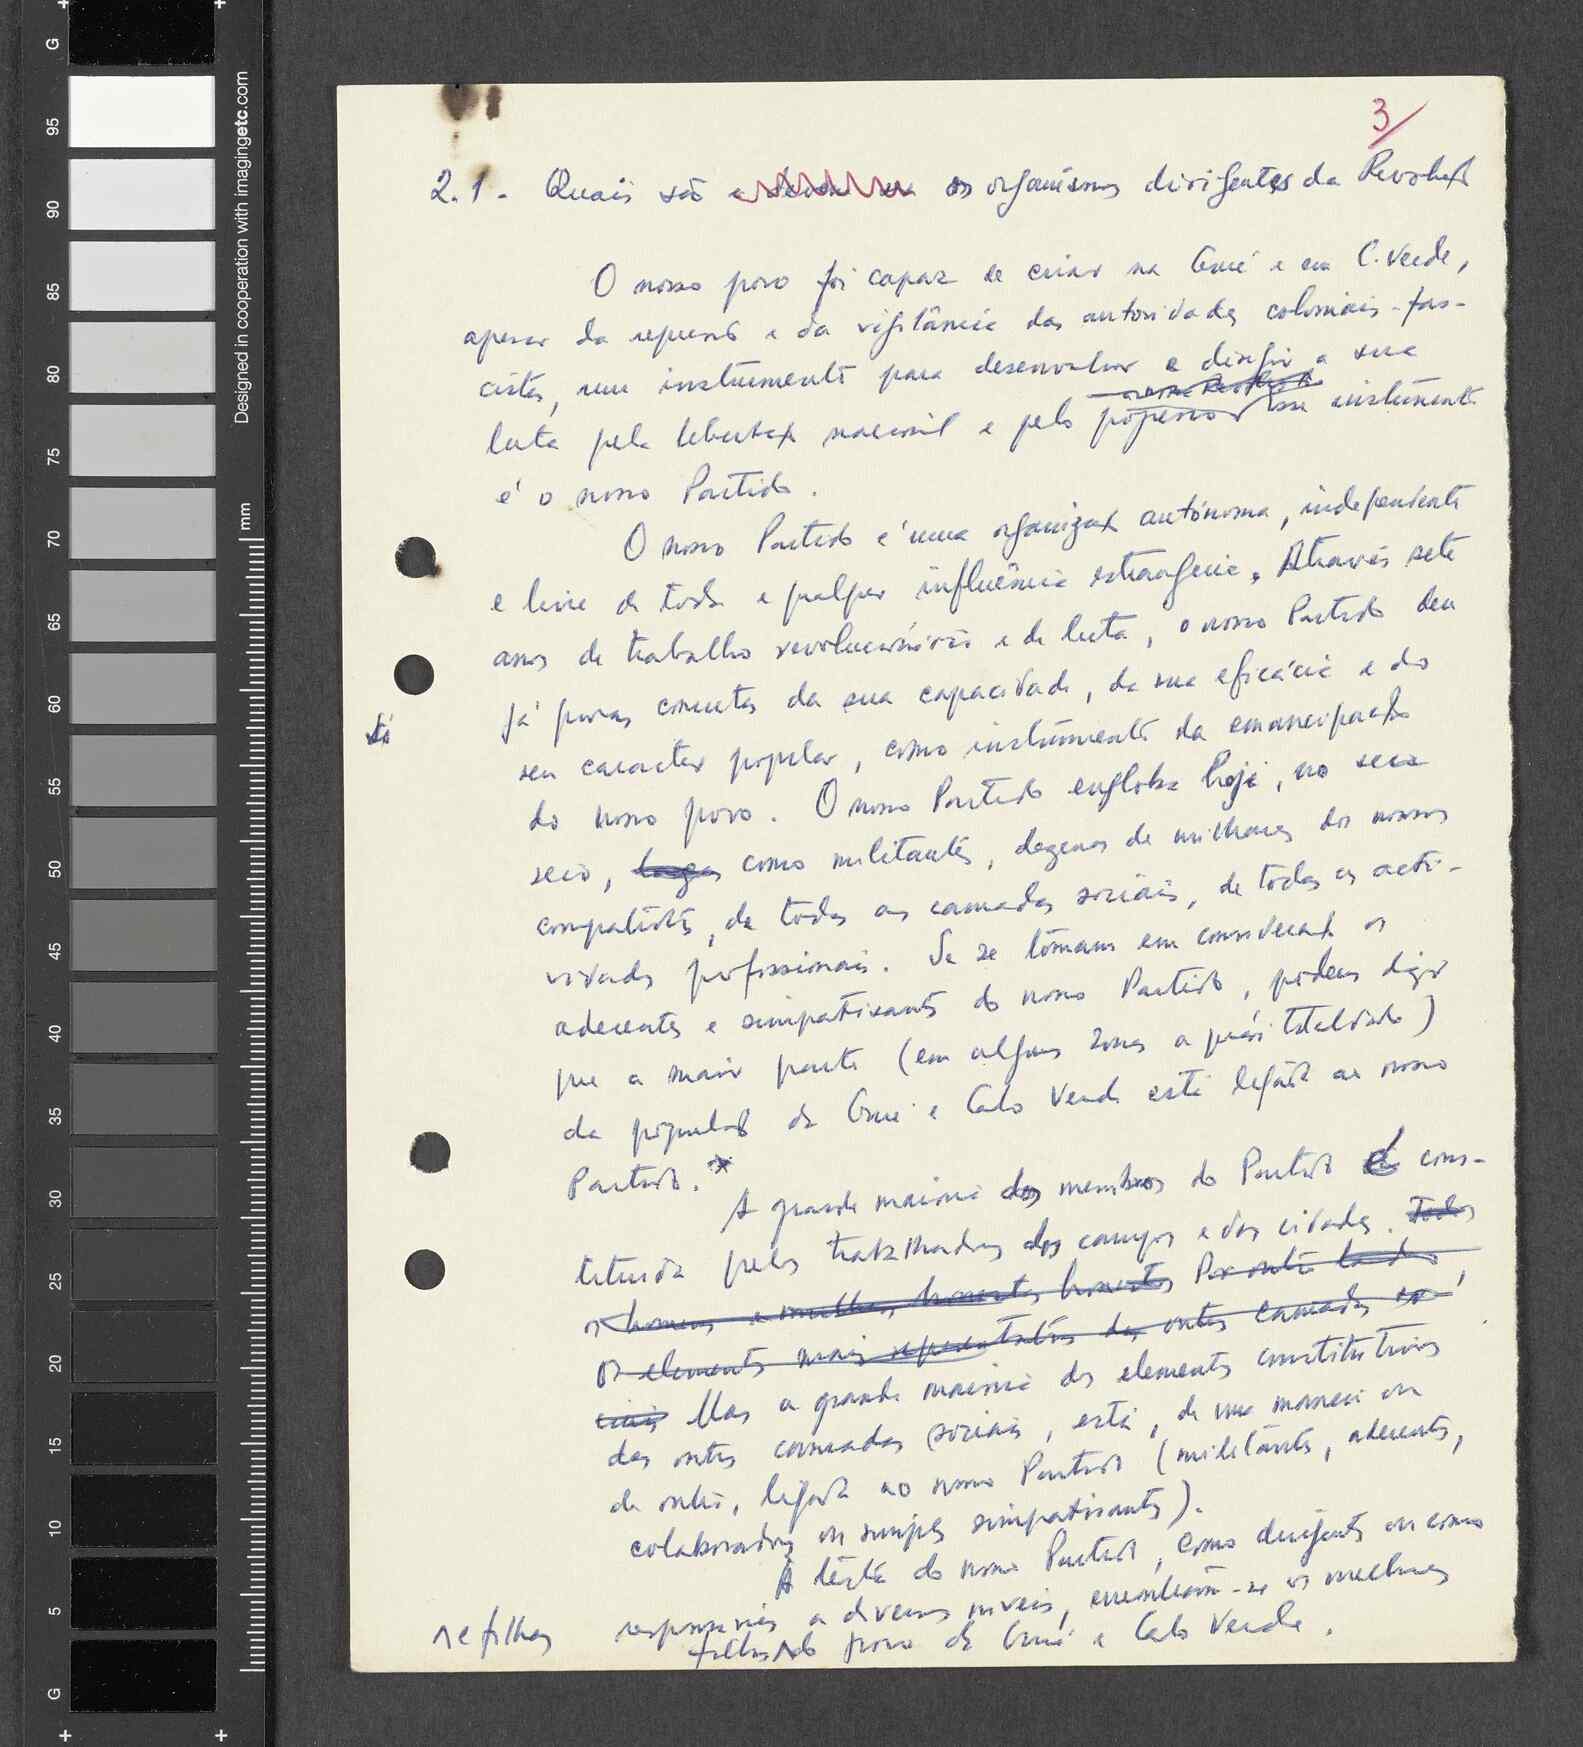 G
95
90
85
80
75
70
65
60
55
50
45
40
35
30
25
20
15
10
5
G
Designed in cooperation with imagingetc.com
mm
3/
2.1. Quais são os organismos dirigentes da Revoluç
O nosso povo foi capaz de criar na Guiné e em C. Verde,
apesar da repressão e da vigilância das autoridades coloniais-fas-
cistas, um instrumento para desenvolver e dirigir a sua
luta pela libertaç nacional e pelo progresso. Esse instrumento
é o nosso Partido.
O nosso Partido é uma organizaç autónoma, independente
e livre de toda e qualquer influência estrangeira. Através sete
anos de trabalho revolucionário e de luta, o nosso Partido deu
já provas concretas da sua capacidade, da sua eficácia e do
seu caracter popular, como instrumento da emancipação
do nosso povo. O nosso Partido engloba hoje, no seu
seio, como militantes, dezenas de milhares dos nossos
compatriotas, de todas as camadas sociais, de todas as acti-
vidades profissionais. Se se tomam em consideraç os
aderentes e simpatisantes do nosso Partido, podemos dizer
que a maior parte (em algumas zonas a quási totalidade)
da população da Guiné e Cabo Verde está ligada ao nosso
Partido. *
A grande maioria dos membros do Partido é cons-
tituida pelos trabalhadores dos campos e das cidades. Todos
os homens e mulheres honestos Por outro lado,
os elementos mais representativos das outras camadas so-
ciais Mas a grande maioria dos elementos constitutivos
das outras camadas sociais, está, de uma maneira ou
de outra, ligada ao nosso Partido (militantes, aderentes,
colaboradores ou simples simpatisantes).
À testa do nosso Partido, como dirigentes ou como
responsáveis a diversos niveis, encontram-se os melhores
filhos do povo da Guiné e Cabo Verde.
e filhas